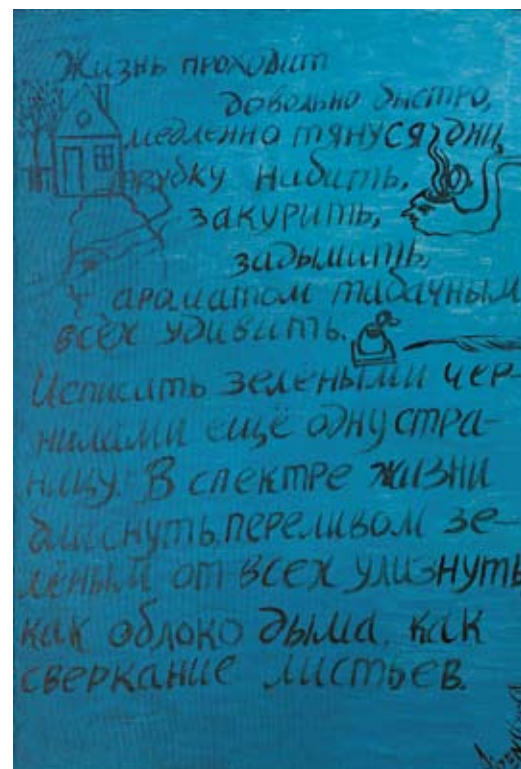 Жизнь проходит
довольно быстро,
медленно тянуся дни,
трубку нибить,
закурить,
задымить,
ароматом табачным
всех удивить.
Исписать зелёными чер-
нилами ещё одну стра-
ницу. В спектре жизни
блиснуть, переливом зе-
лёным от всех улизнуть
как облоко дыма, как
сверкание листьев.